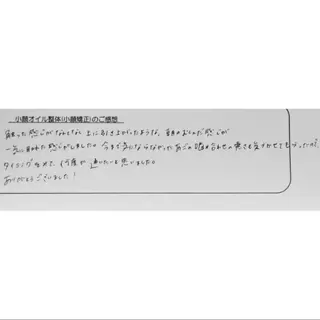 小顔オイル整体(小顔矯正)のご感想
触った感じがなんとなく上に引き上がったような、顔のおくの感じが
一気に取れた感じがしました。今まで気にならなかったあごの噛み合わせの
タイミングを見て、何度か通いたいと思いました。
ありがとうございました！